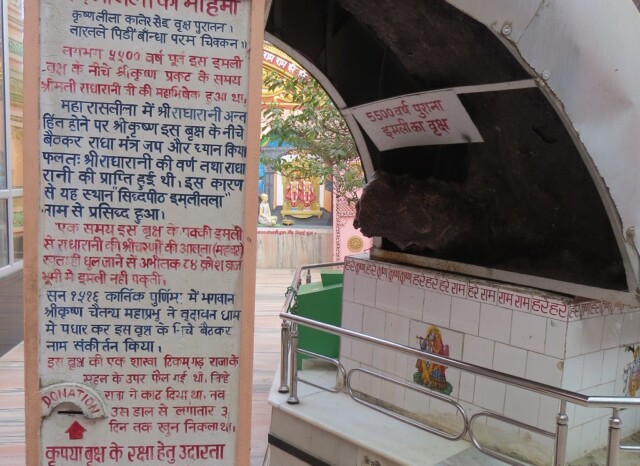 कृष्णलीला कालेर सेइ वृक्ष पुरातन।
तारतले पिँडी बाँन्धा परम चिक्कन॥
लगभग ५५०० वर्ष पूर्व इस इमली
वृक्ष के नीचे श्रीकृष्ण प्रकट के समय
श्रीमती राधारानी जी की महाभिषेक हुआ था।
महा रासलीला में श्रीराधारानी अन्त
हित होने पर श्रीकृष्ण इस बृक्ष के नीचे
बैठकर राधा मंत्र जप और ध्यान किया
फलतः श्रीराधारानी की वर्ण तथा राधा
रानी की प्राप्ति हुई थी। इस कारण
से यह स्थान "सिध्दपीठ इमलीतला"
नाम से प्रसिध्द हुआ।
एक समय इस बृक्ष के पक्की इमली
से राधारानी की श्रीचरणों की आलता (महवर)
स्वतः ही धूल जाने से अभीतक ८४ क्रोश ब्रज
भूमी मे इमली नही पकती।
सन १५१६ कार्तिक पूर्णिमा में भगवान
श्रीकृष्ण चैतन्य महाप्रभु ने वृंदावन धाम
में पधार कर इस वृक्ष के निचे बैठकर
नाम संकीर्तन किया।
इस बृक्ष की एक शाखा टिकमगढ़ राजाके
महल के उपर फैल गई थी। जिन्हे
राजा ने काट दिया था, तब
उस डाल से लगातार 3
दिन तक खुन निकला था।
DONATION
कृपया बृक्ष के रक्षा हेतु उदारता
5500 वर्ष पुराना
इमली का वृक्ष
हरे कृष्ण कृष्ण कृष्ण हरे हरे हरे राम हरे राम राम राम हरे हरे